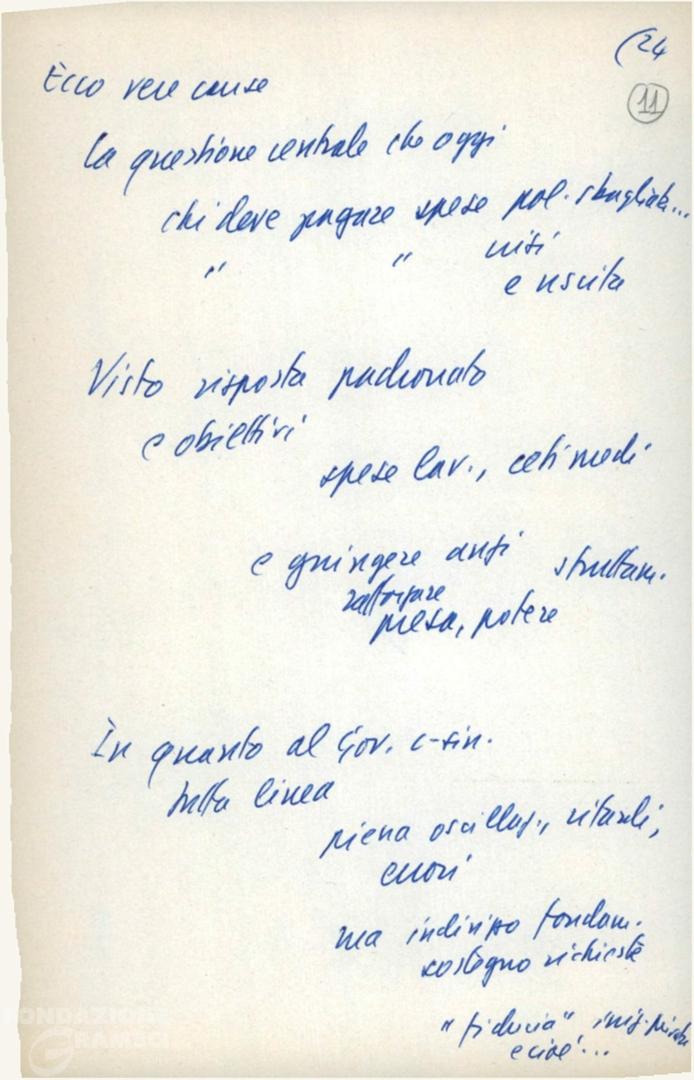 (24
11
Ecco vere cause
la questione centrale che oggi
chi deve pagare spese pol. sbagliate...
" " crisi
e uscita
Visto risposta padronato
e obiettivi
spese lav., ceti medi
e spingere anzi sfruttam.
rafforzare
presa, potere
In quanto al Gov. c-sin.
tutta linea
piena oscillaz., ritardi,
errori
ma indirizzo fondam.
sostegno richieste
"fiducia" iniz. privata
e cioè...
FONDAZIONE
GRAMSCI